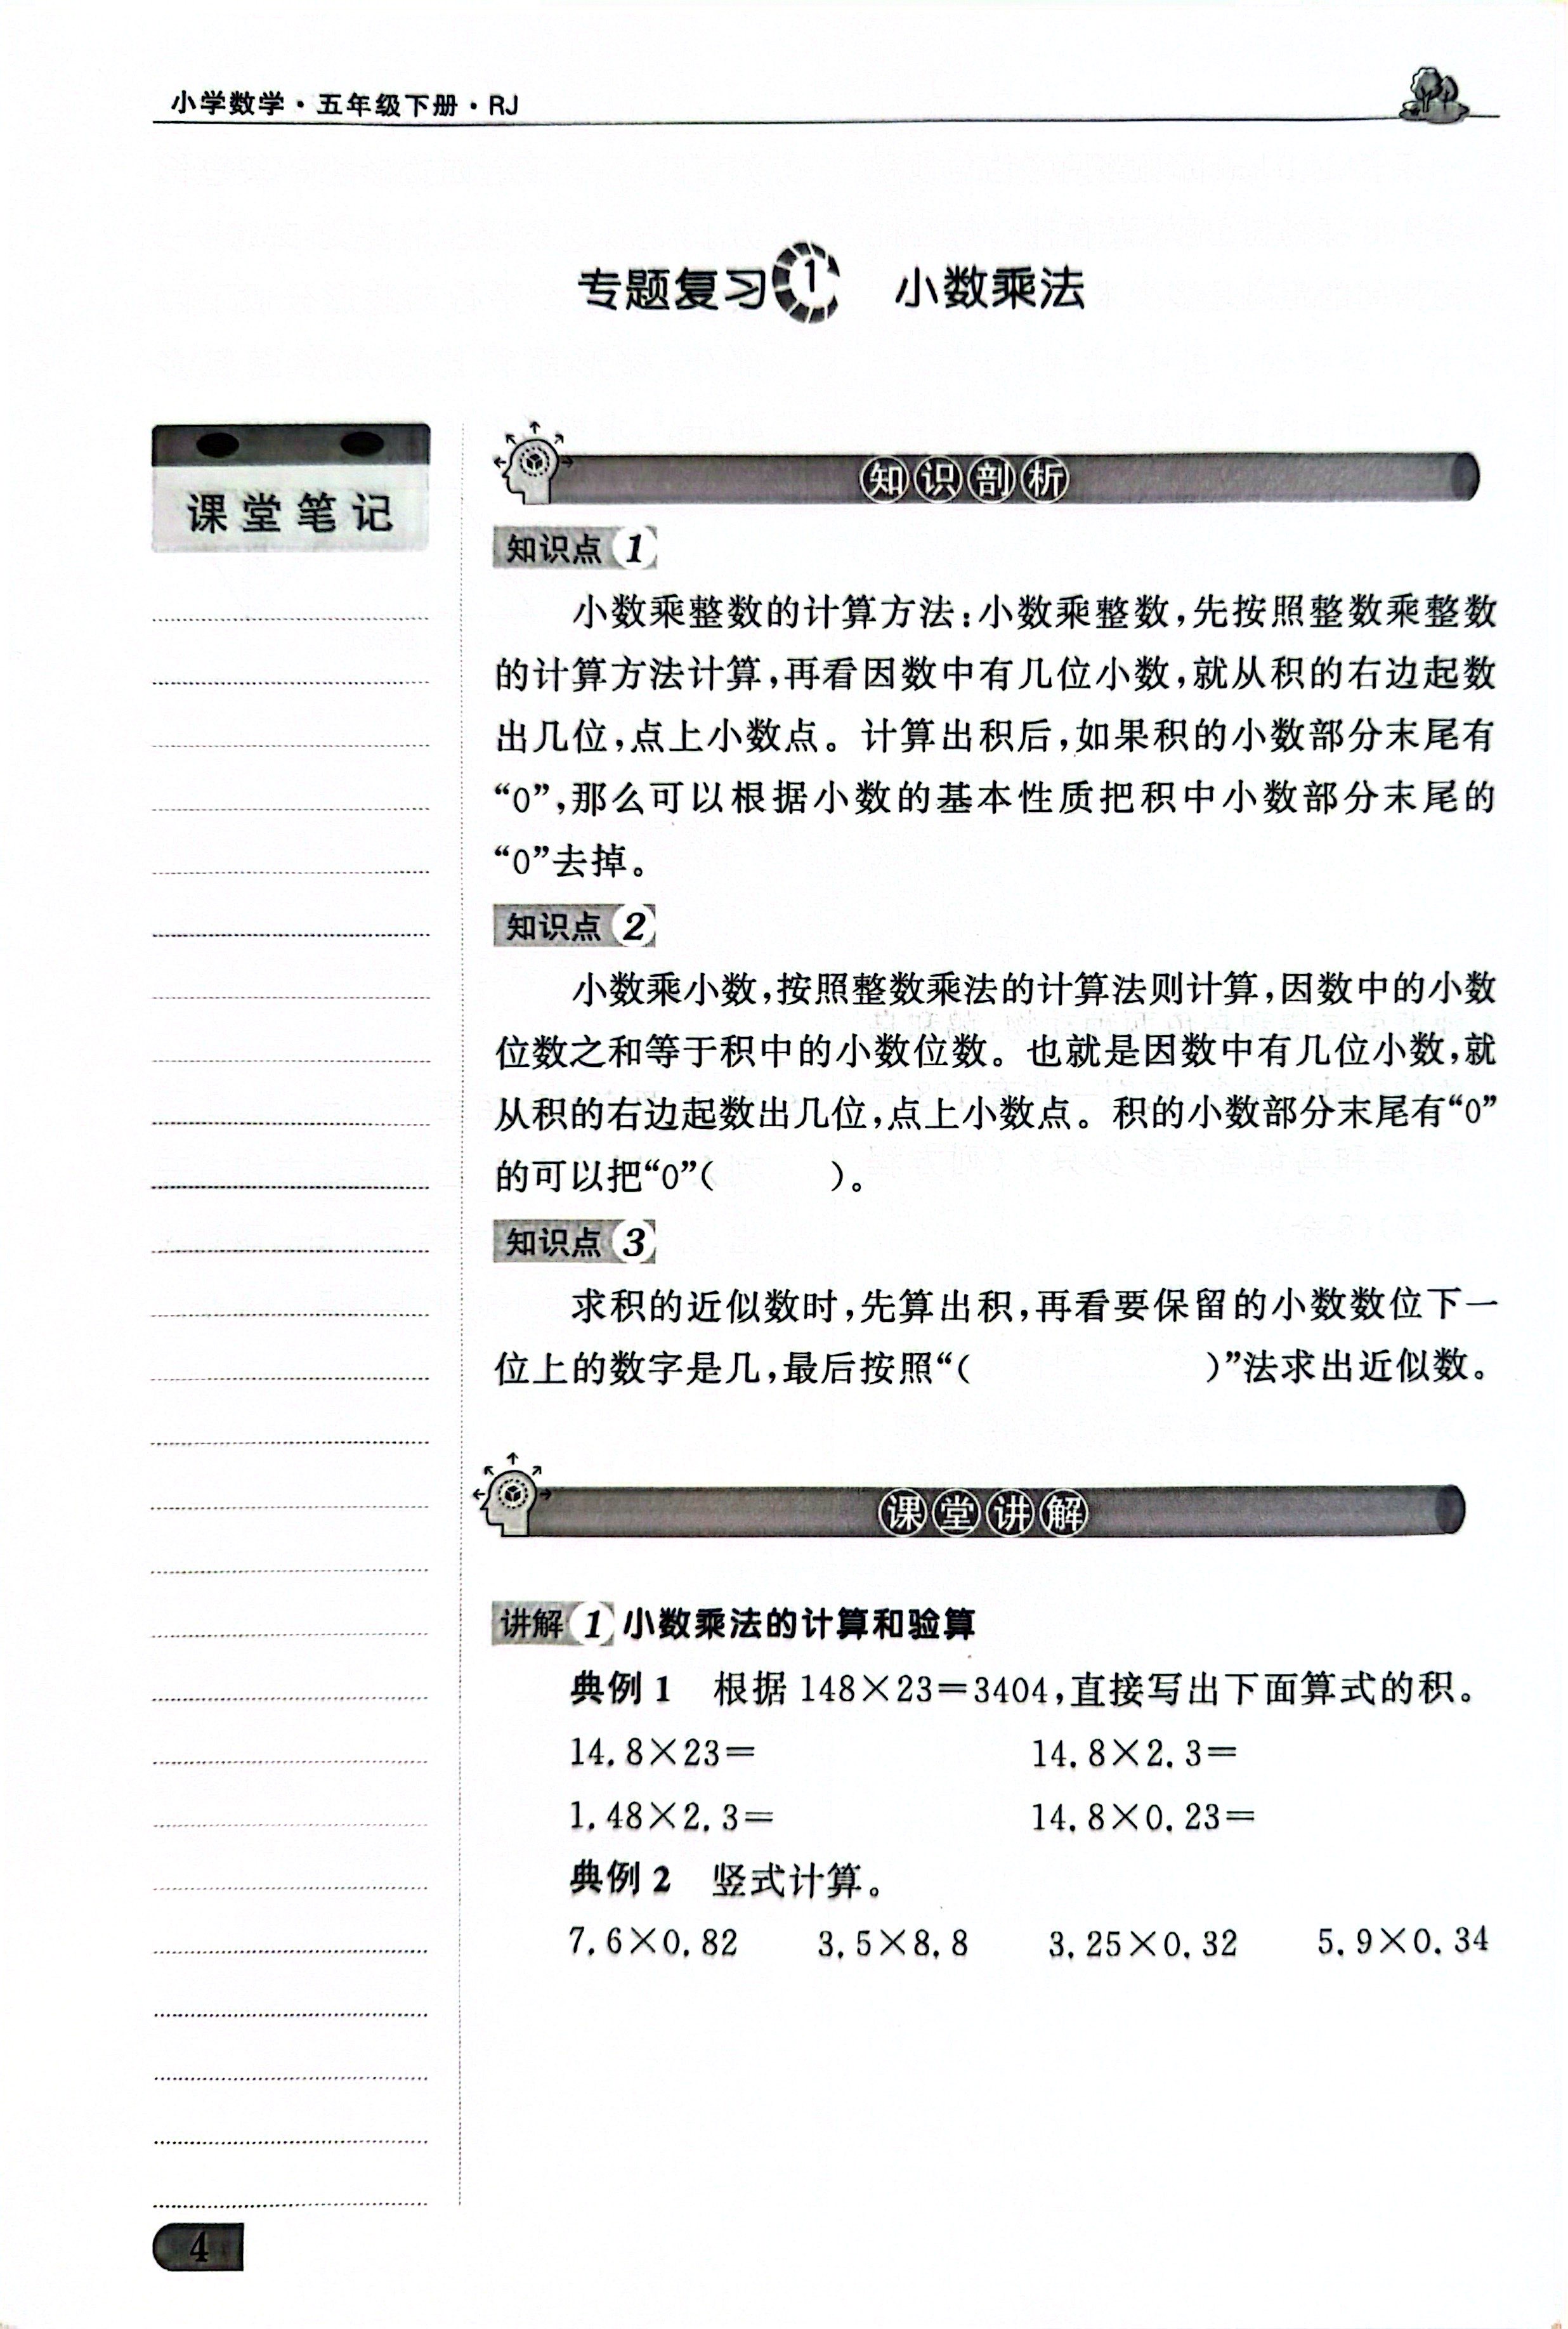 小学数学·五年级下册·RJ
专题复习1 小数乘法
课堂笔记
知识剖析
知识点1
小数乘整数的计算方法:小数乘整数,先按照整数乘整数
的计算方法计算,再看因数中有几位小数,就从积的右边起数
出几位,点上小数点。计算出积后,如果积的小数部分末尾有
“0”,那么可以根据小数的基本性质把积中小数部分末尾的
“0”去掉。
知识点2
小数乘小数,按照整数乘法的计算法则计算,因数中的小数
位数之和等于积中的小数位数。也就是因数中有几位小数,就
从积的右边起数出几位,点上小数点。积的小数部分末尾有“0”
的可以把“0”( )。
知识点3
求积的近似数时,先算出积,再看要保留的小数数位下一
位上的数字是几,最后按照“( )”法求出近似数。
课堂讲解
讲解1 小数乘法的计算和验算
典例1 根据148×23=3404,直接写出下面算式的积。
14.8×23= 14.8×2.3=
1.48×2.3= 14.8×0.23=
典例2 竖式计算。
7.6×0.82 3.5×8.8 3.25×0.32 5.9×0.34
4